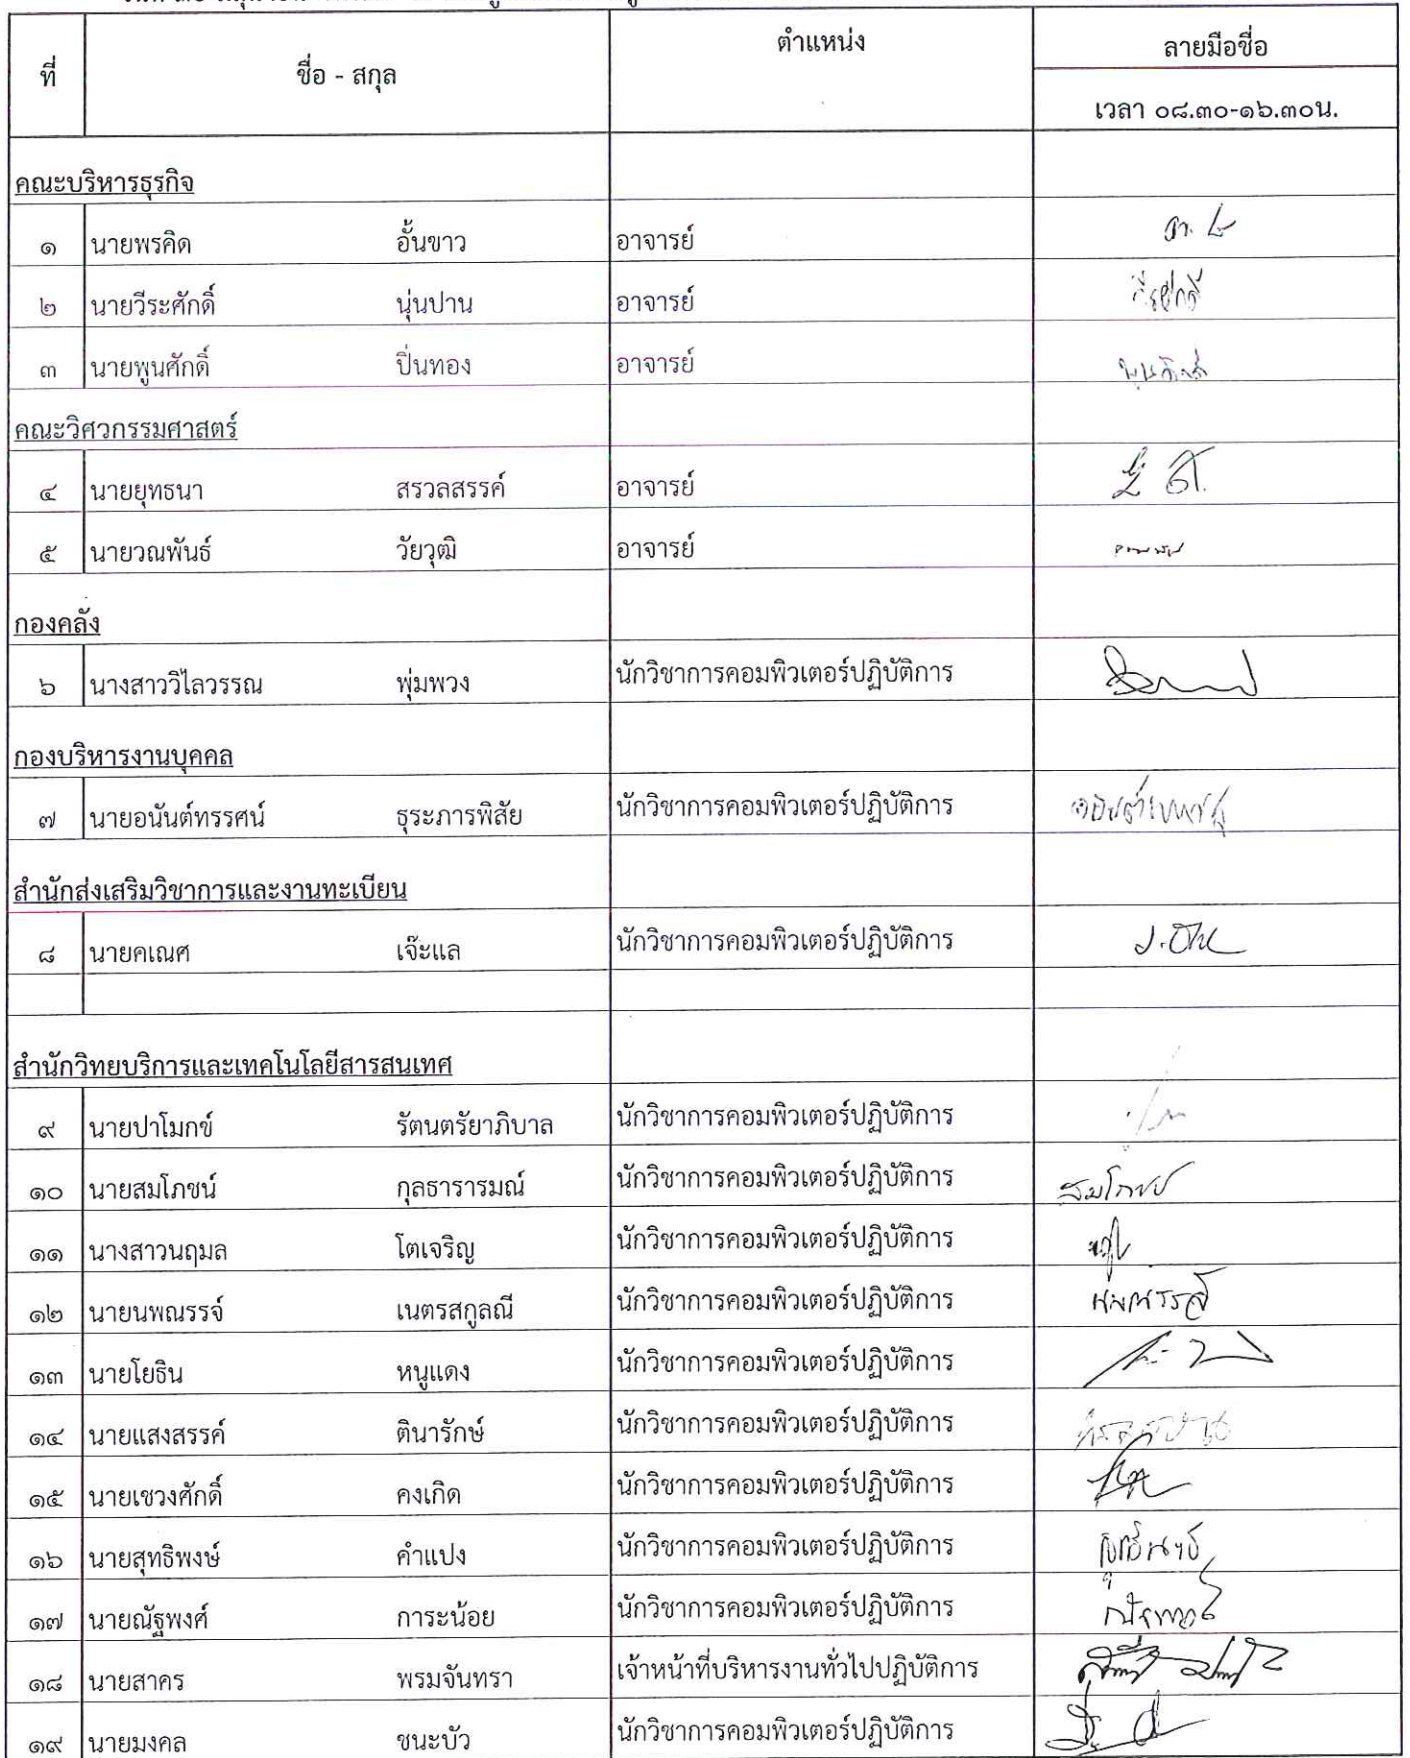 ที่ ชื่อ - สกุล ตำแหน่ง ลายมือชื่อ
เวลา ๐๘.๓๐-๑๖.๓๐น.
คณะบริหารธุรกิจ
๑ นายพรคิด อั้นขาว อาจารย์
๒ นายวีระศักดิ์ นุ่นปาน อาจารย์ วีรศักดิ์
๓ นายพูนศักดิ์ ปิ่นทอง อาจารย์ พูนศักดิ์
คณะวิศวกรรมศาสตร์
๔ นายยุทธนา สรวลสรรค์ อาจารย์
๕ นายวณพันธ์ วัยวุฒิ อาจารย์
กองคลัง
๖ นางสาววิไลวรรณ พุ่มพวง นักวิชาการคอมพิวเตอร์ปฏิบัติการ
กองบริหารงานบุคคล
๗ นายอนันต์ทรรศน์ ธุระภารพิสัย นักวิชาการคอมพิวเตอร์ปฏิบัติการ
สำนักส่งเสริมวิชาการและงานทะเบียน
๘ นายคเณศ เจ๊ะแล นักวิชาการคอมพิวเตอร์ปฏิบัติการ
สำนักวิทยบริการและเทคโนโลยีสารสนเทศ
๙ นายปาโมกข์ รัตนตรัยาภิบาล นักวิชาการคอมพิวเตอร์ปฏิบัติการ
๑๐ นายสมโภชน์ กุลธารารมณ์ นักวิชาการคอมพิวเตอร์ปฏิบัติการ สมโภชน์
๑๑ นางสาวนฤมล โตเจริญ นักวิชาการคอมพิวเตอร์ปฏิบัติการ
๑๒ นายนพณรรจ์ เนตรสกูลณี นักวิชาการคอมพิวเตอร์ปฏิบัติการ นพณรรจ์
๑๓ นายโยธิน หนูแดง นักวิชาการคอมพิวเตอร์ปฏิบัติการ
๑๔ นายแสงสรรค์ ตินารักษ์ นักวิชาการคอมพิวเตอร์ปฏิบัติการ
๑๕ นายเชวงศักดิ์ คงเกิด นักวิชาการคอมพิวเตอร์ปฏิบัติการ
๑๖ นายสุทธิพงษ์ คำแปง นักวิชาการคอมพิวเตอร์ปฏิบัติการ
๑๗ นายณัฐพงศ์ การะน้อย นักวิชาการคอมพิวเตอร์ปฏิบัติการ ณัฐพงศ์
๑๘ นายสาคร พรมจันทรา เจ้าหน้าที่บริหารงานทั่วไปปฏิบัติการ
๑๙ นายมงคล ชนะบัว นักวิชาการคอมพิวเตอร์ปฏิบัติการ